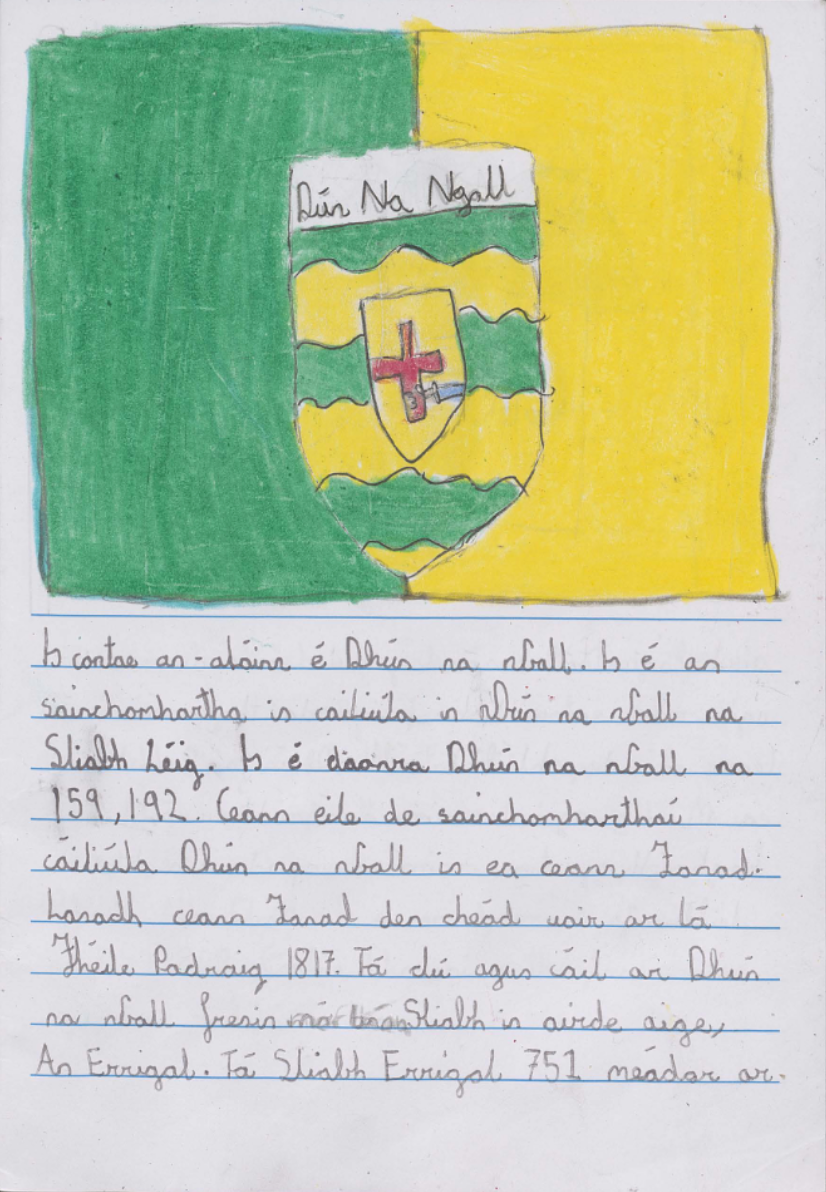 Dún Na Ngall
Is contae an-aláinn é Dhún na nGall. Is é an
sainchomhartha is cailiúla in nDún na nGall na
Sliabh Léig. Is é daonra Dhún na nGall na
159,192. Ceann eile de sainchomharthaí
cáiliúla Dhún na nGall is ea ceann Fanad.
Lasadh ceann Fanad den chéad uair ar lá
Fhéile Padraig 1817. Tá clú agus cáil ar Dhún
na nGall freisin Sliabh is airde aige,
An Errigal. Tá Sliabh Errigal 751 méadar ar.